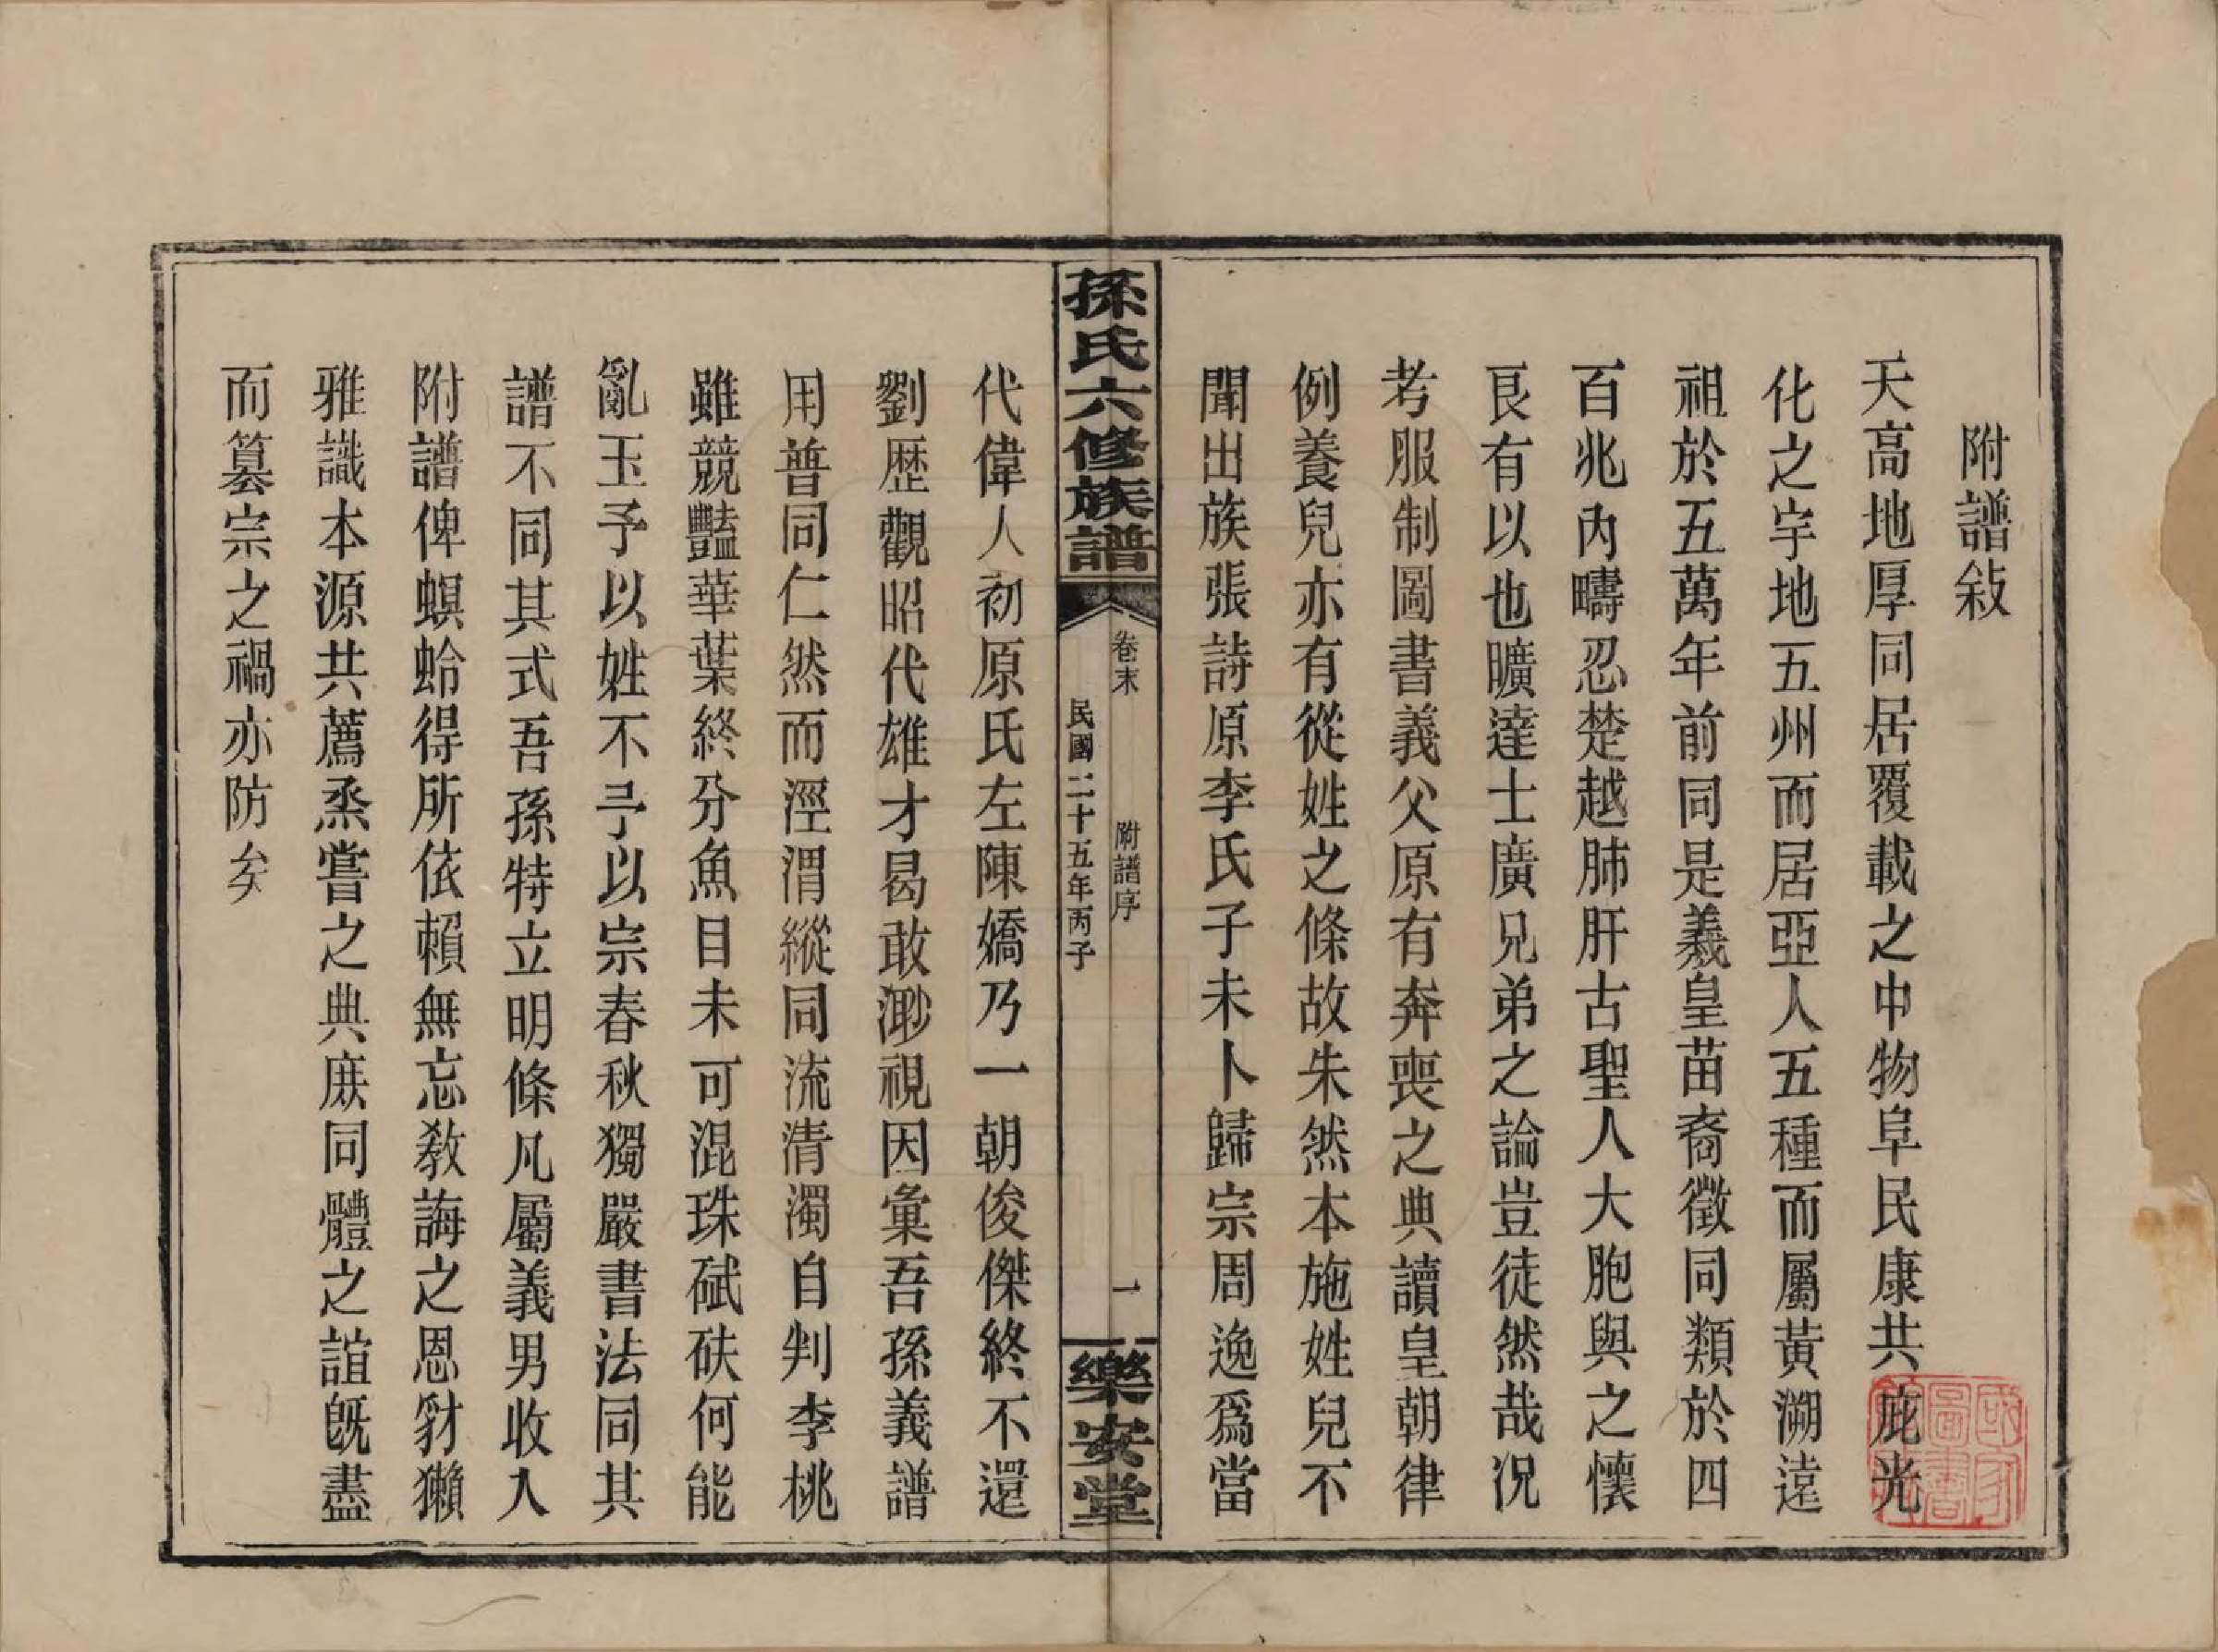 附譜敍
天高地厚同居覆載之中物阜民康共庇光
化之宇地五州而居亞人五種而屬黃溯遠
祖於五萬年前同是羲皇苗裔徵同類於四
百兆內疇忍楚越肺肝古聖人大胞與之懷
良有以也曠達士廣兄弟之論豈徒然哉況
考服制圖書義父原有奔喪之典讀皇朝律
例養兒亦有從姓之條故朱然本施姓兒不
聞出族張詩原李氏子未卜歸宗周逸爲當
孫氏六修族譜
卷末
附譜序
一
民國二十五年丙子
樂安堂
代偉人初原氏左陳嬌乃一朝俊傑終不還
劉歷觀昭代雄才曷敢渺視因彙吾孫義譜
用普同仁然而涇渭縱同流清濁自判李桃
雖競豔華葉終分魚目未可混珠碔砆何能
亂玉予以姓不予以宗春秋獨嚴書法同其
譜不同其式吾孫特立明條凡屬義男收入
附譜俾螟蛉得所依賴無忘教誨之恩豺獺
雅識本源共薦烝嘗之典庶同體之誼既盡
而篡宗之禍亦防矣
國家圖書館藏